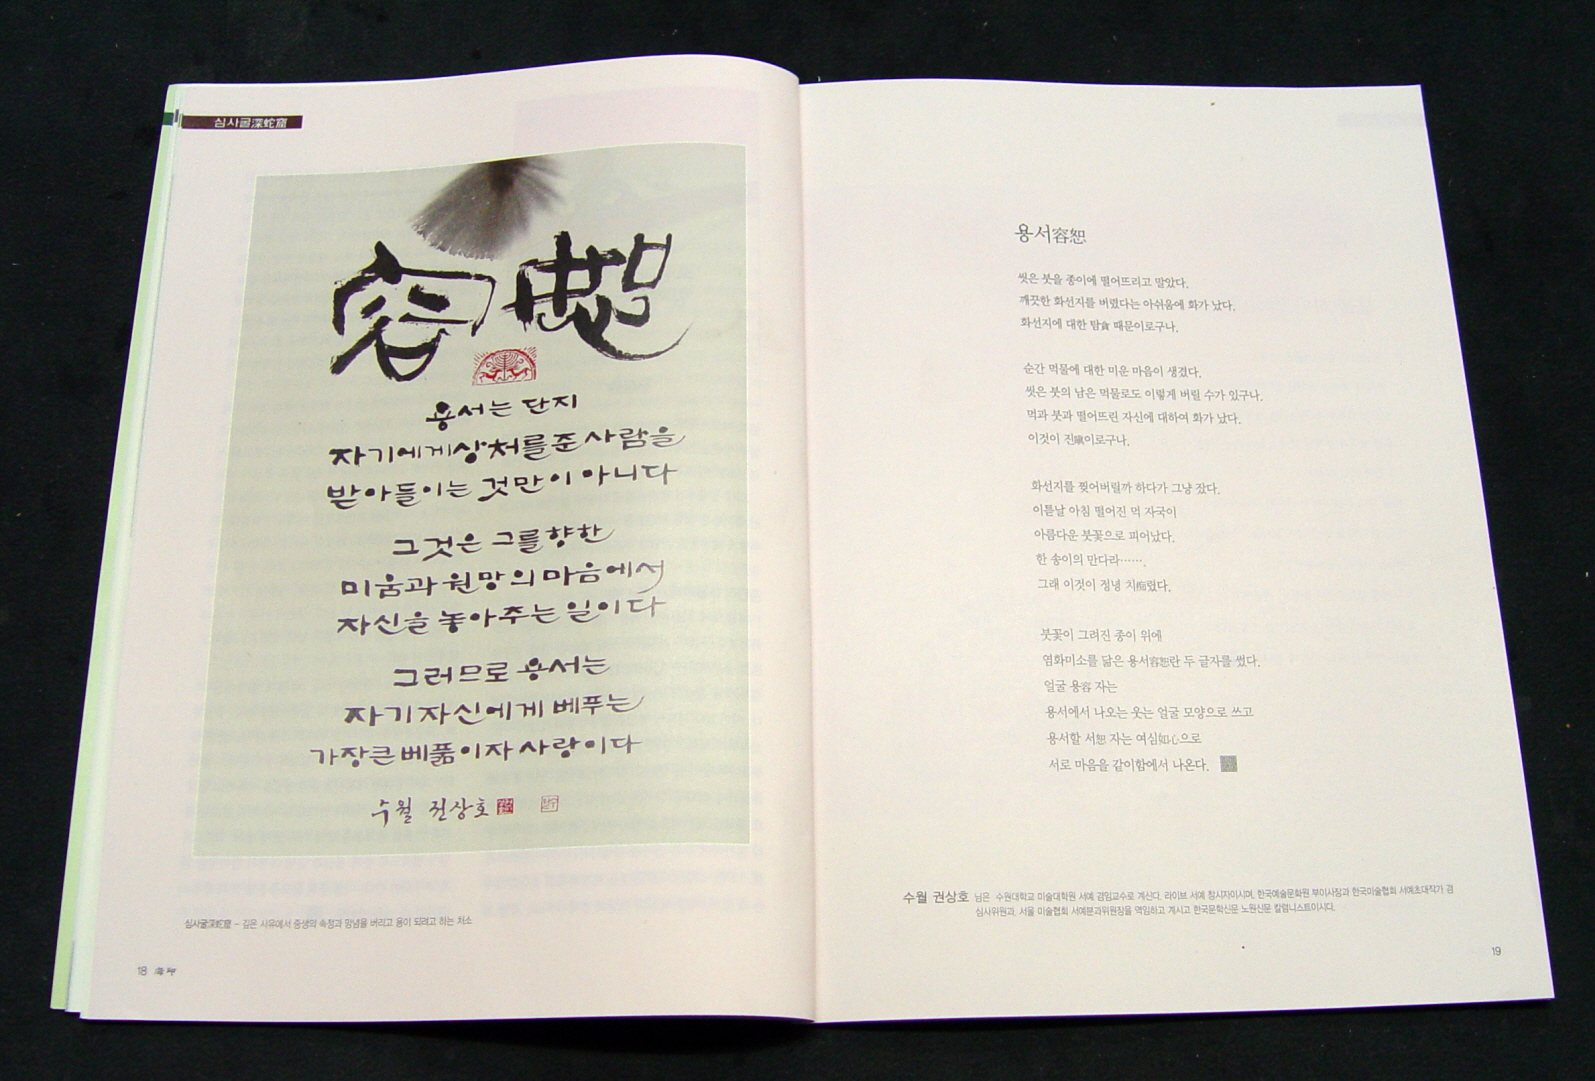 심사굴深蛇窟
容恕
용서는 단지
자기에게 상처를 준 사람을
받아들이는 것만이 아니다
그것은 그를 향한
미움과 원망의 마음에서
자신을 놓아주는 일이다
그러므로 용서는
자기 자신에게 베푸는
가장 큰 베풂이자 사랑이다
수월 권상호
심사굴深蛇窟 - 깊은 사유에서 중생의 속정과 망념을 버리고 용이 되려고 하는 처소
18 海印
용서容恕
씻은 붓을 종이에 떨어뜨리고 말았다.
깨끗한 화선지를 버렸다는 아쉬움에 화가 났다.
화선지에 대한 탐貪 때문이로구나.
순간 먹물에 대한 미운 마음이 생겼다.
씻은 붓의 남은 먹물로도 이렇게 버릴 수가 있구나.
먹과 붓과 떨어뜨린 자신에 대하여 화가 났다.
이것이 진瞋이로구나.
화선지를 찢어버릴까 하다가 그냥 잤다.
이튿날 아침 떨어진 먹 자국이
아름다운 붓꽃으로 피어났다.
한 송이의 만다라…….
그래 이것이 정녕 치痴렸다.
붓꽃이 그려진 종이 위에
염화미소를 닮은 용서容恕란 두 글자를 썼다.
얼굴 용容 자는
용서에서 나오는 웃는 얼굴 모양으로 쓰고
용서할 서恕 자는 여심如心으로
서로 마음을 같이함에서 나온다.
수월 권상호 님은 수원대학교 미술대학원 서예 겸임교수로 계신다. 라이브 서예 창시자이시며, 한국예술문화원 부이사장과 한국미술협회 서예초대작가 겸
심사위원과, 서울 미술협회 서예분과위원장을 역임하고 계시고 한국문학신문 노원신문 칼럼니스트이시다.
19